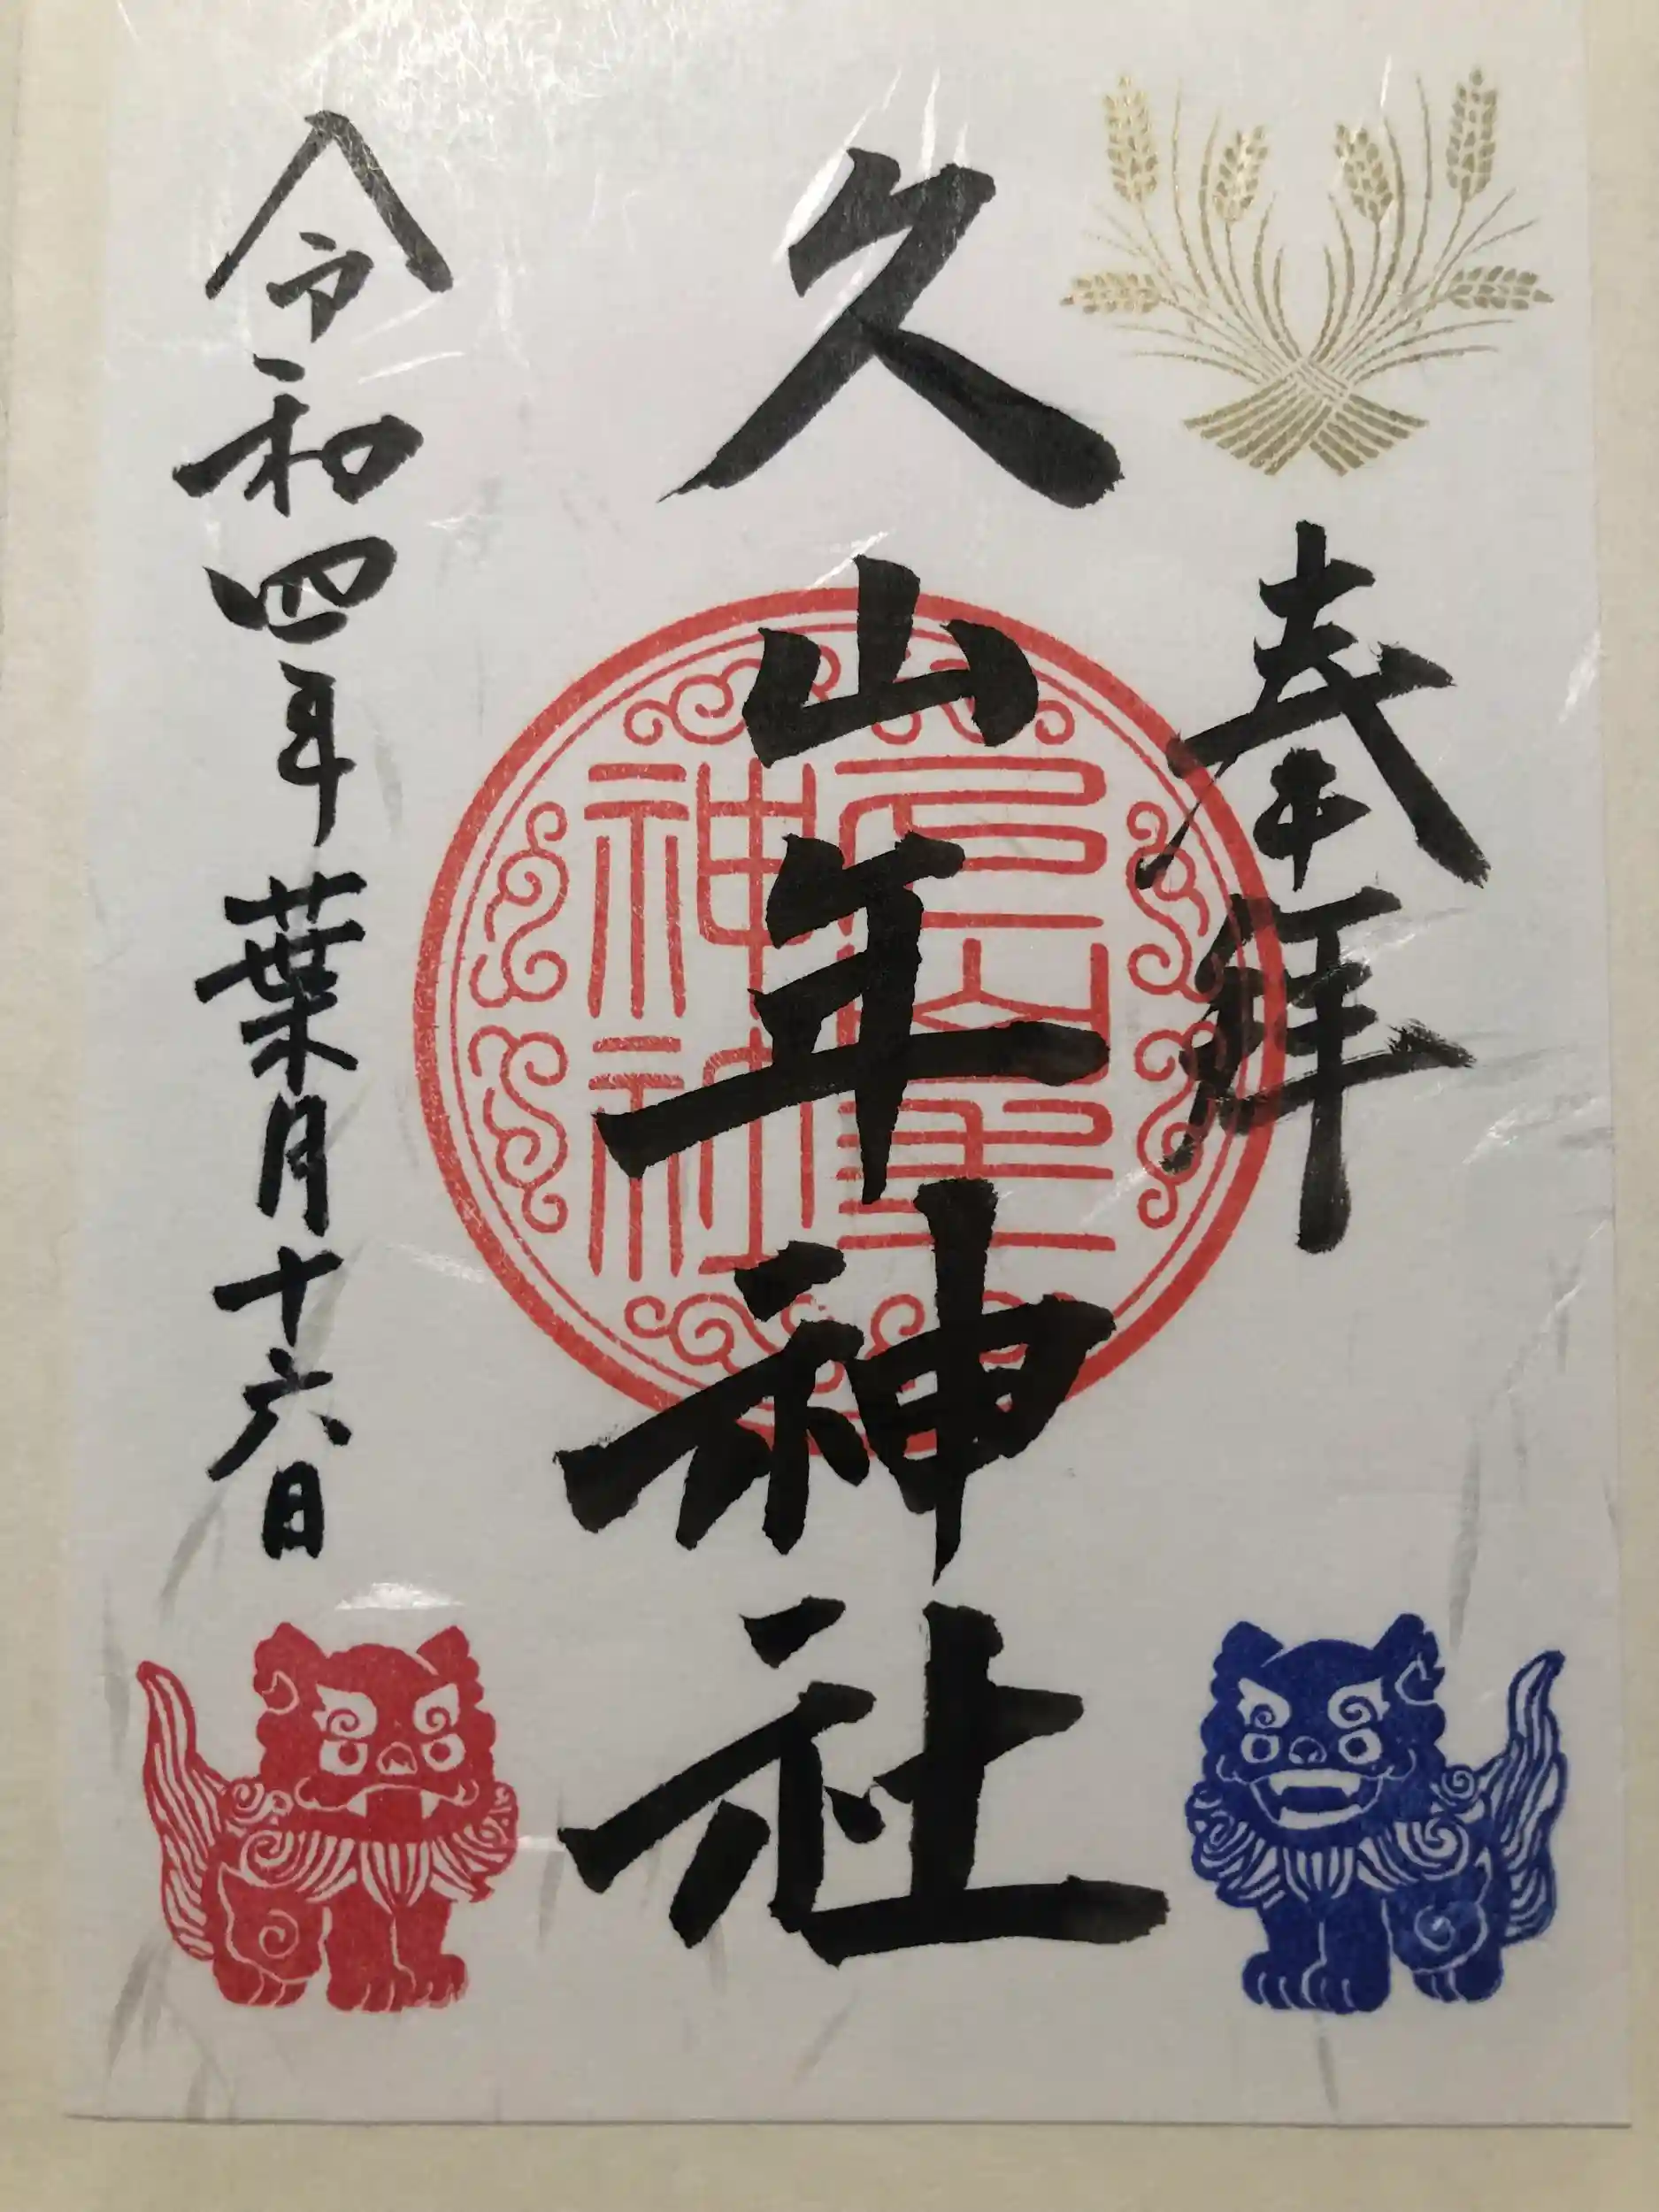 奉拝
久山年神社
久山年神社
令和四年葉月十六日